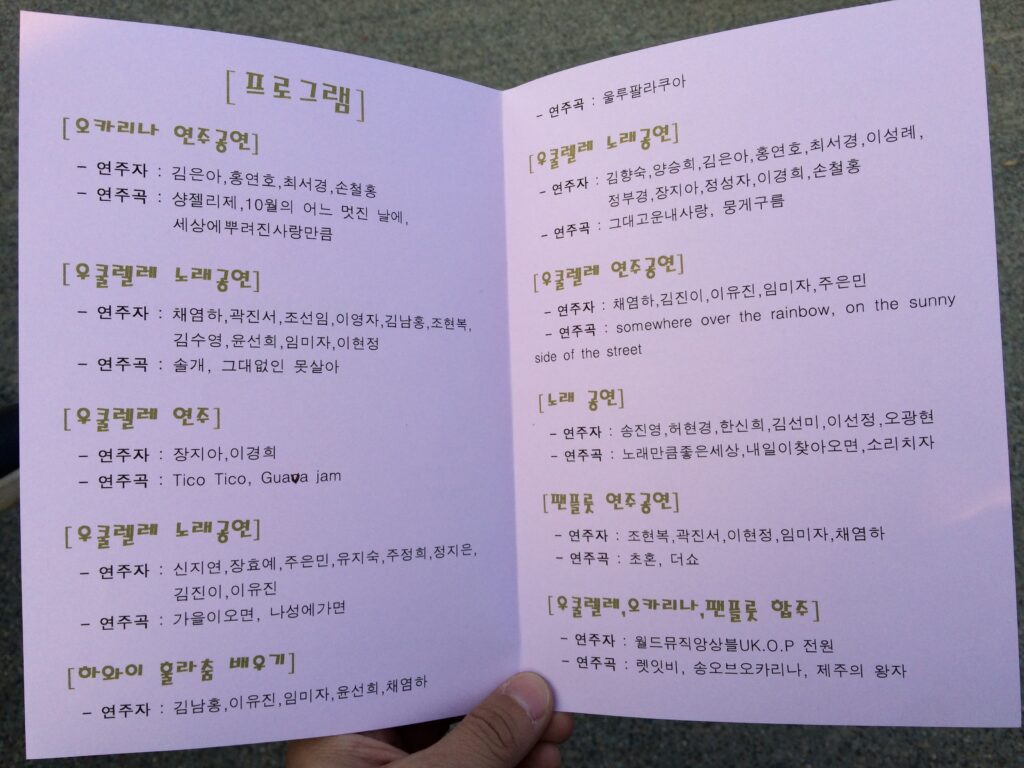 [프로그램]
[오카리나 연주공연]
- 연주자 : 김은아,홍연호,최서경,손철홍
- 연주곡 : 샹젤리제,10월의 어느 멋진 날에,
세상에뿌려진사랑만큼
[우쿨렐레 노래공연]
- 연주자 : 채염하,곽진서,조선임,이영자,김남홍,조현복,
김수영,윤선희,임미자,이현정
- 연주곡 : 솔개, 그대없인 못살아
[우쿨렐레 연주]
- 연주자 : 장지아,이경희
- 연주곡 : Tico Tico, Guava jam
[우쿨렐레 노래공연]
- 연주자 : 신지연,장효예,주은민,유지숙,주정희,정지은,
김진이,이유진
- 연주곡 : 가을이오면, 나성에가면
[하와이 훌라춤 배우기]
- 연주자 : 김남홍,이유진,임미자,윤선희,채염하
- 연주곡 : 울루팔라쿠아
[우쿨렐레 노래공연]
- 연주자 : 김향숙,양승희,김은아,홍연호,최서경,이성례,
정부경,장지아,정성자,이경희,손철홍
- 연주곡 : 그대고운내사랑, 뭉게구름
[우쿨렐레 연주공연]
- 연주자 : 채염하,김진이,이유진,임미자,주은민
- 연주곡 : somewhere over the rainbow, on the sunny
side of the street
[노래 공연]
- 연주자 : 송진영,허현경,한신희,김선미,이선정,오광현
- 연주곡 : 노래만큼좋은세상,내일이찾아오면,소리치자
[팬플룻 연주공연]
- 연주자 : 조현복,곽진서,이현정,임미자,채염하
- 연주곡 : 초혼, 더쇼
[우쿨렐레,오카리나,팬플룻 합주]
- 연주자 : 월드뮤직앙상블UK.O.P 전원
- 연주곡 : 렛잇비, 송오브오카리나, 제주의 왕자